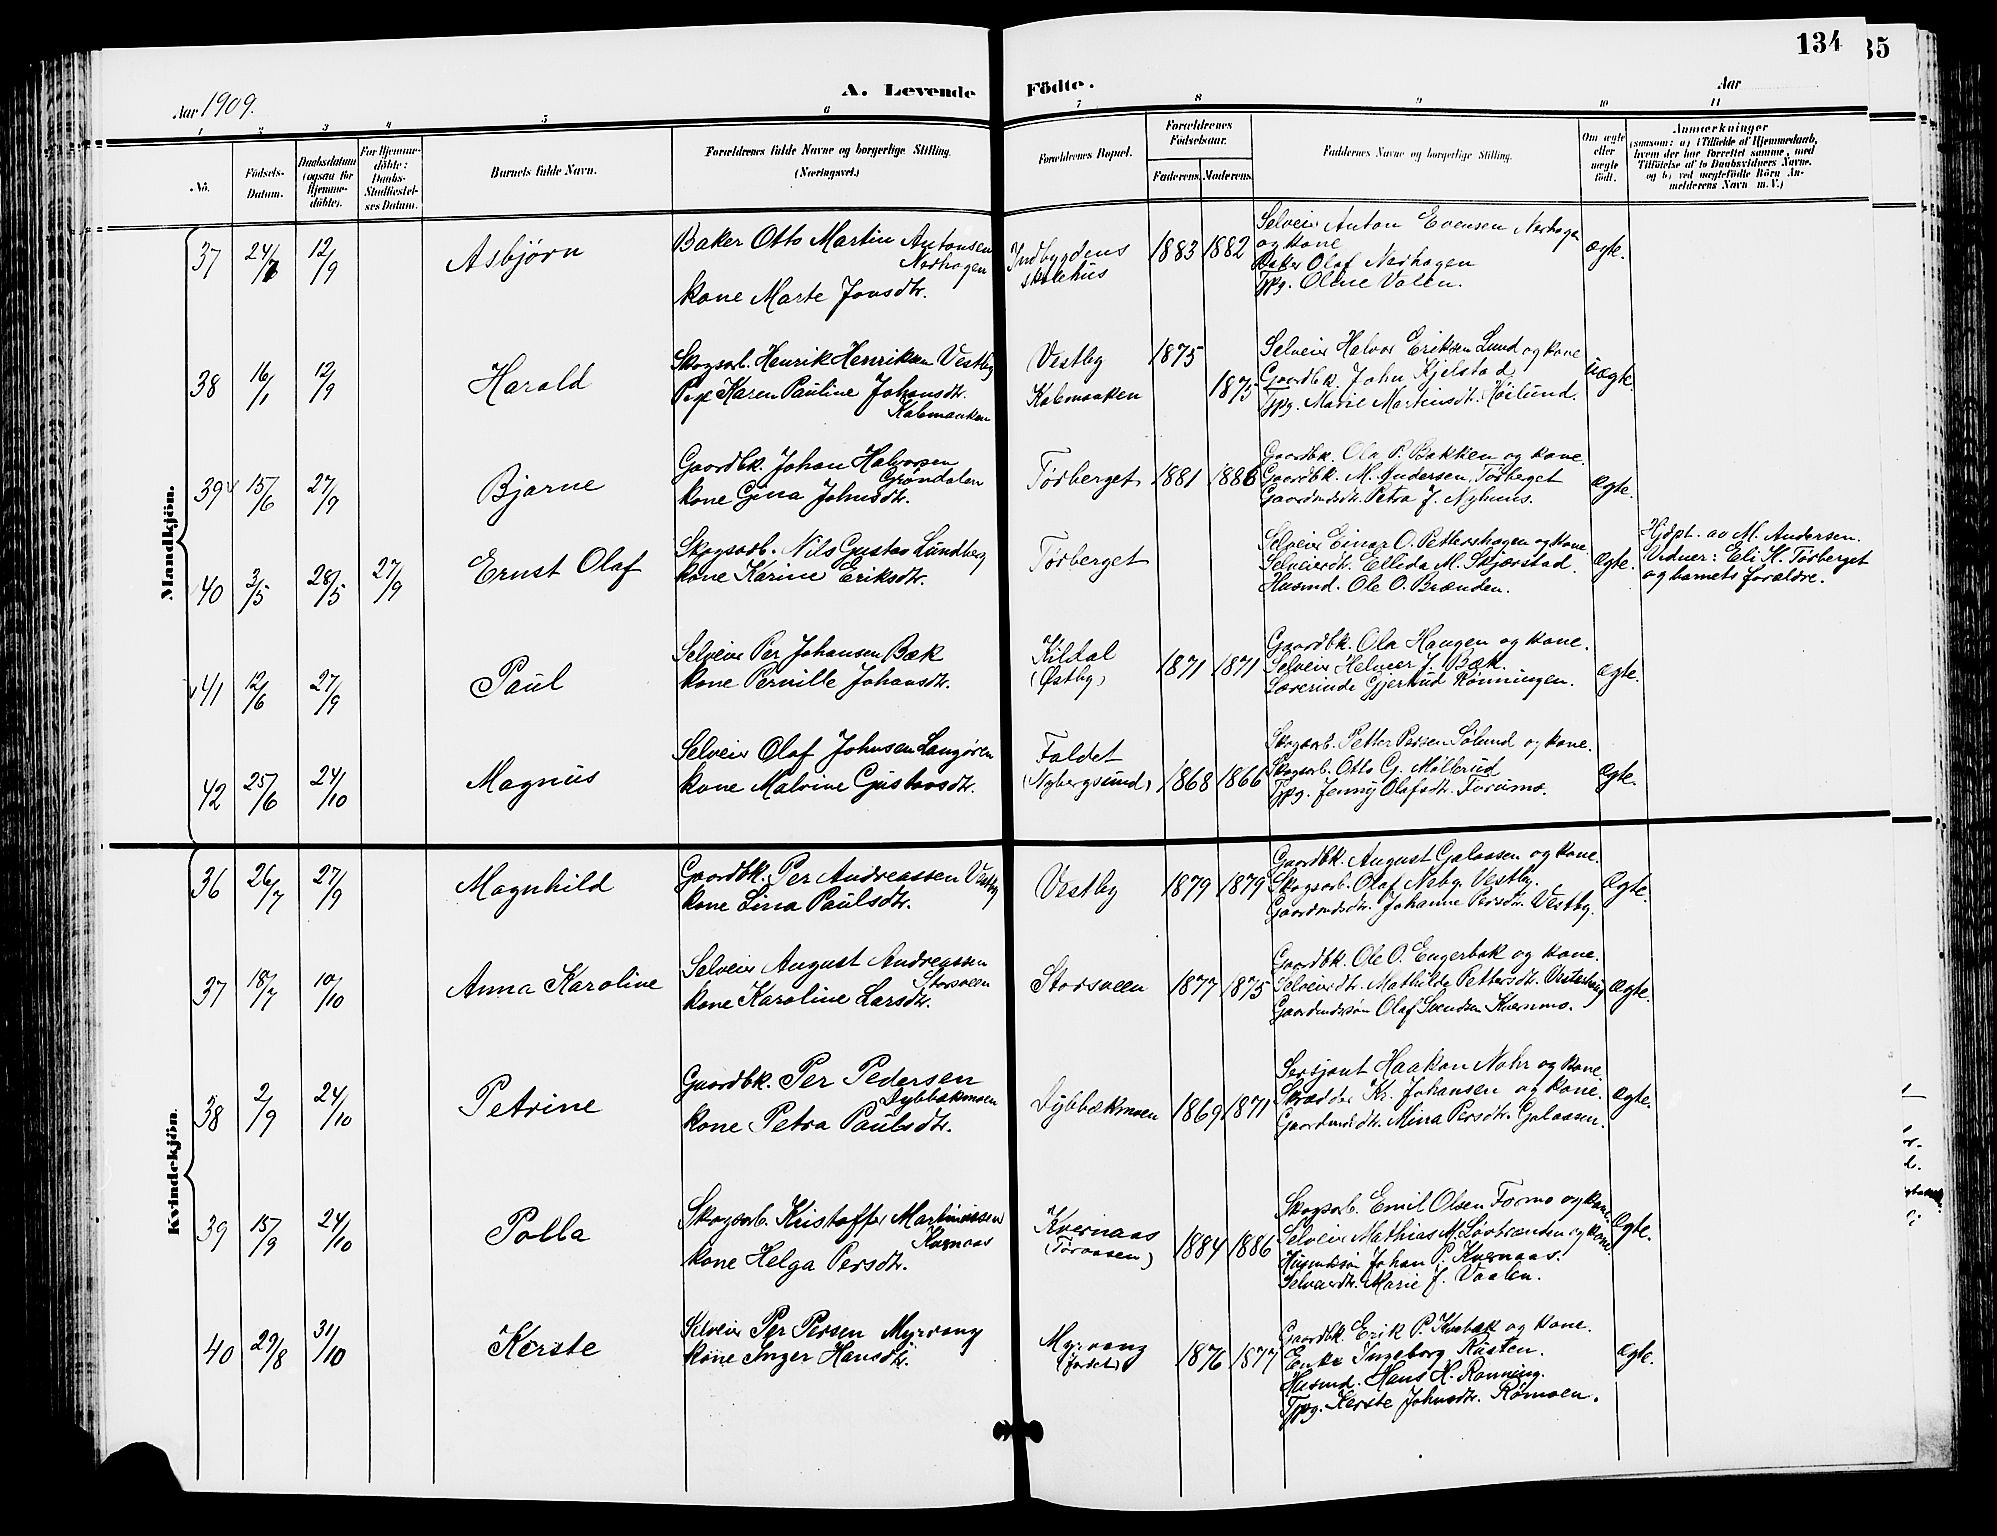 134
35
Aar 1909.
A. Levende Födte.
Aar
1 2 3 4 5 6 7 8 9 10 11
No.
Födsels-
Datum.
Daabsdatum
(ogsaa for
Hjemme-
döbte).
For Hjemme-
döbte:
Daabs-
Stadfæstel-
ses Datum.
Barnets fulde Navn.
Forældrenes fulde Navne og borgerlige Stilling.
(Næringsvei.)
Forældrenes Bopæl.
Forældrenes
Födselsaar.
Faderens. Moderens.
Faddernes Navne og borgerlige Stilling.
Om ægte
eller
uægte
födt.
Anmærkninger
(saasom: a) i Tilfælde af Hjemmedaab,
hvem der har forrettet samme, med
Tilföielse af to Daabsvidners Navne,
og b) ved uægtefödte Börn An-
melderens Navn m. V.)
Mandkjön.
37 24/7 12/9 Asbjørn
Baker Otto Martin Antonsen
Nerhagen
kone Marte Jonsdtr.
Indbygdens
skolehus
1883 1882
Selveier Anton Evensen Nerhagen
og kone
Baker Olaf Nerhagen
Tjpg. Oline Valen.
ægte.
38 16/1 12/9 Harald
Skogsarb. Henrik Henriksen Vestby
Pige Karen Pauline Johansdtr.
Kalvmaaken
Vestby
Kalvmaaken
1875
1875
Selveier Halvor Eriksen Lund og kone
Gaardbk. John Kjelstad
Tjpg. Marie Martinsdtr. Høilund.
uægte
39 15/6 27/9 Bjarne
Gaardbk. Johan Halvorsen
Grøndalen
kone Gina Johnsdtr.
Tørberget
1881 1886
Gaardbk. Ola P. Bakken og kone.
Gaardbk. M. Andersen, Tørberget
Gaardmdsdtr. Petra J. Nyhuus.
ægte.
40 3/5 28/5 27/9 Ernst Olaf
Skogsarb. Nils Gustav Lundberg
kone Karine Eriksdtr.
Tørberget
Selveier Einar O. Pettershagen og kone.
Selveierdtr. Ellida M. Skjærstad.
Husmd. Ole O. Brænden.
ægte.
Hjdpt. av M. Andersen.
Vidner: Eli H. Tørberget
og barnets forældre.
41 12/6 27/9 Paul
Selveier Per Johansen Bæk
kone Pernille Johansdtr.
Kildal
(Østby)
1871 1871
Gaardbk. Ola Haugen og kone.
Selveier Helmer J. Bæk.
Lærerinde Gjertrud Rønningen.
ægte.
42 25/6 24/10 Magnus
Selveier Olaf Johnsen Langøren
kone Malvine Gustavsdtr.
Faldet
(Nybergsund)
1868 1866
Skogsarb. Petter Persen Sølund og kone.
Skogsarb. Otto G. Møllerud
Tjpg. Jenny Olafsdtr. Furumo.
ægte.
Kvindekjön.
36 26/7 27/9 Magnhild
Gaardbk. Per Andreassen Vestby
kone Lina Paulsdtr.
Vestby
1879 1879
Gaardbk. August Galaasen og kone.
Skogsarb. Olaf Neby Vestby.
Gaardmdsdtr. Johanne Persdtr. Vestby.
ægte.
37 18/7 10/10 Anna Karoline
Selveier August Andreassen
Storsveen
kone Karoline Larsdtr.
Storsveen
1877 1875
Gaardbk. Ole O. Engerbak og kone.
Selveierdtr. Mathilde Pettersdtr.
Gaardmdssøn Olaf Svendsen Kværnmo.
ægte.
38 2/9 24/10 Petrine
Gaardbk. Per Pedersen
Dybbækmoen
kone Petra Paulsdtr.
Dybbækmoen
1869 1871
Sersjant Haakon Nohr og kone
Skrædder Kr. Johansen og kone.
Gaardmdsdtr. Mina Persdtr. Galaasen.
ægte.
39 15/9 24/10 Palla
Skogsarb. Kristoffer Martinussen
Kvernaas
kone Helga Persdtr.
Kvernaas
(Tøraasen)
1884 1886
Skogsarb. Emil Olsen Formo og kone.
Selveier Mathias M. Løvbrænden og kone
Husmdssøn Johan P. Kvernaas.
Selveierdtr. Marie J. Vaalen.
ægte.
40 29/8 31/10 Kerste
Selveier Per Persen Myrvang
kone Inger Hansdtr.
Myrvang
(Jordet)
1876 1877
Gaardbk. Erik P. Kvebæk og kone.
Enke Ingeborg Rusten.
Husmd. Hans H. Rønning.
Tjpg. Kerste Johnsdtr. Rømoen.
ægte.